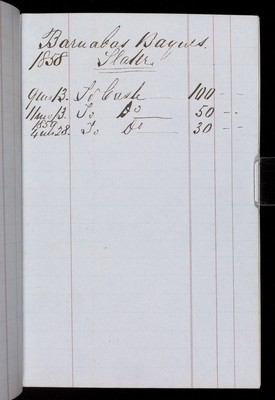 Barnabas Baynes.
1858 Slater.
9mo 13. To Cash 100 - -
11mo 13. To Do 50 - -
1859
4mo 28. To Do 30 - -